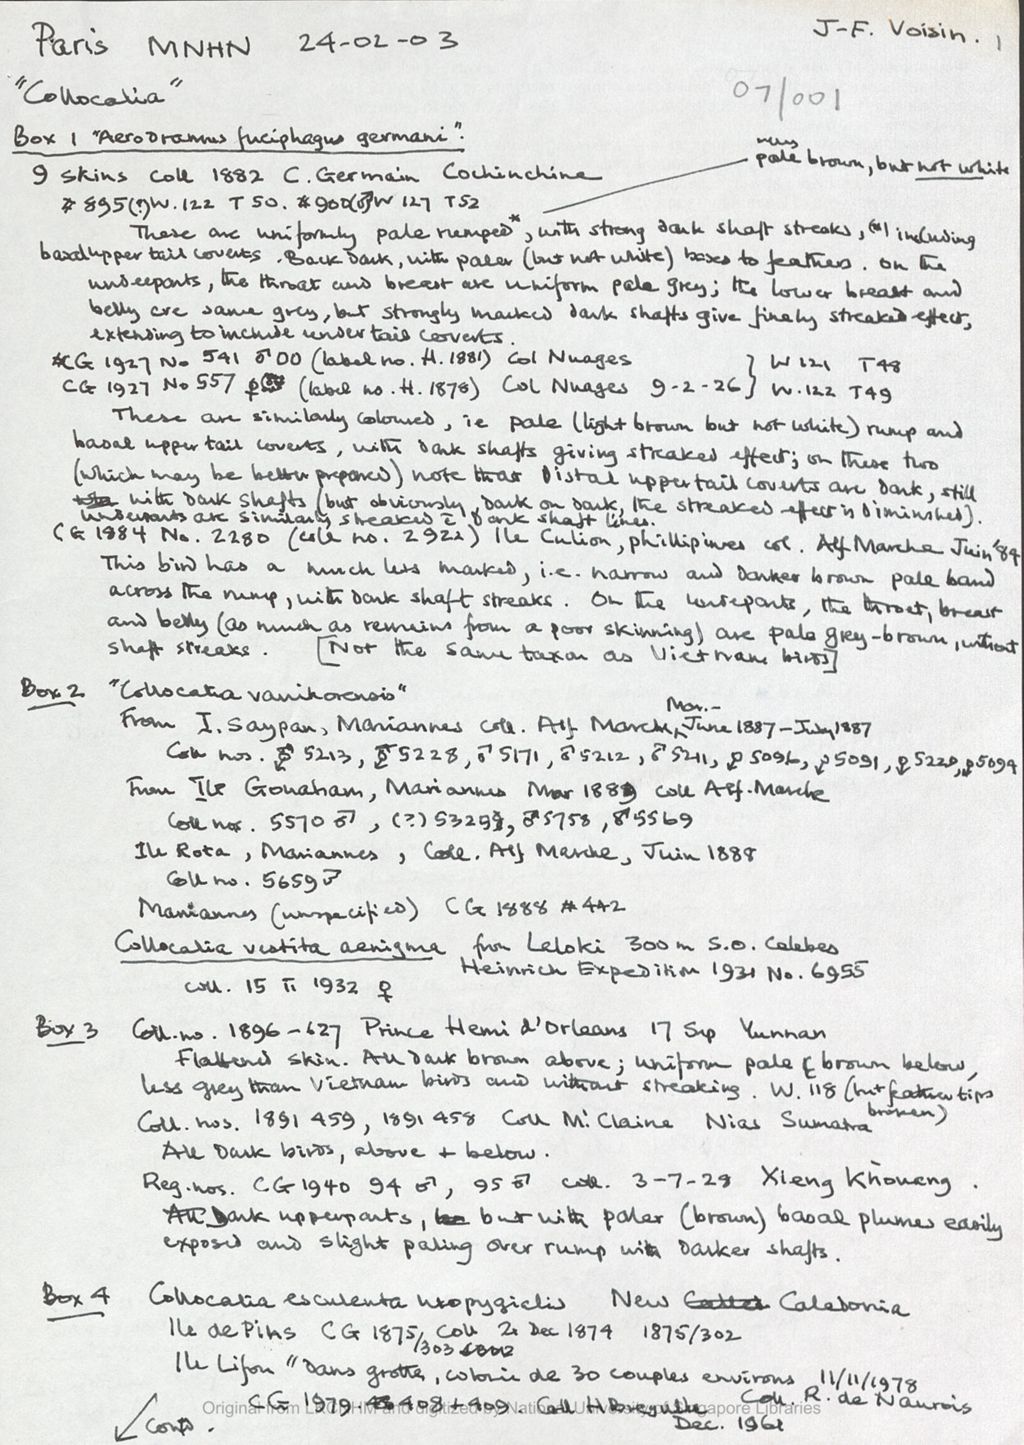 Paris MNHN 24-02-03 J-F. Voisin. 1
"Collocalia" 07/001
Box 1 "Aerodramus fuciphagus germani".
very
pale brown, but not white
9 skins coll 1882 C. Germain Cochinchine
# 895(?)W.122 T50. #900(♂)W127 T52
These are uniformly pale rumped*, with strong dark shaft streaks, (*) including
basal upper tail coverts. Back dark, with paler (but not white) bases to feathers. On the
underparts, the throat and breast are uniform pale grey; the lower breast and
belly are same grey, but strongly marked dark shafts give finely streaked effect,
extending to include under tail coverts.
*CG 1927 No 541 ♂00 (label no. H. 1881) Col Nuages } W121 T48
CG 1927 No 557 ♀ (label no. H. 1878) Col Nuages 9-2-26} W.122 T49
These are similarly coloured, ie pale (light brown but not white) rump and
basal upper tail coverts, with dark shafts giving streaked effect; on these two
(which may be better prepared) note that distal upper tail coverts are dark, still
with dark shafts (but obviously, dark on dark, the streaked effect is diminished).
Underparts are similarly streaked c̄ dark shaft lines.
CG 1884 No. 2280 (coll no. 2922) Ile Culion, phillipines col. Alf Marche Juin '84
This bird has a much less marked, i.e. narrow and darker brown pale band
across the rump, with dark shaft streaks. On the underparts, the throat, breast
and belly (as much as remains from a poor skinning) are pale grey-brown, without
shaft streaks. [Not the same taxon as Vietnam birds]
Box 2 "Collocalia vanikorensis"
Mar.-
From I. Saypan, Mariannes coll. Alf Marche, June 1887-July 1887
Coll nos. ♂ 5213, ♂ 5228, ♂ 5171, ♂ 5212, ♂ 5211, ♀ 5096, ♀ 5091, ♀ 5220, ♀ 5094
From Ile Gouaham, Mariannes Mar 1889 coll Alf. Marche
Coll nos. 5570 ♂, (?) 5329, ♂ 5758, ♂ 5569
Ile Rota, Mariannes, Coll. Alf Marche, Juin 1888
Coll no. 5659 ♂
Mariannes (unspecified) CG 1888 #442
Collocalia vestita aenigma from Leloki 300m S.O. Celebes
Heinrich Expedition 1931 No. 6955
coll. 15 II 1932 ♀
Box 3 Coll.no. 1896-627 Prince Henri d'Orleans 17 Sep Yunnan
Flattened skin. All dark brown above; uniform pale brown below,
less grey than Vietnam birds and without streaking. W. 118 (but feather tips
broken)
Coll. nos. 1891 459, 1891 458 Coll McClaine Nias Sumatra
All dark birds, above + below.
Reg. nos. CG 1940 94 ♂, 95 ♂ coll. 3-7-29 Xieng Khoueng.
Dark upperparts, but with paler (brown) basal plumes easily
exposed and slight paling over rump with darker shafts.
Box 4 Collocalia esculenta uropygialis New Caledonia
Ile de Pins CG 1875/ Coll 2 Dec 1874 1875/302
/303
Ile Lifou "Dans grotte, colonie de 30 couples environs 11/11/1978
Coll. R. de Naurois
CG 1979- 408 + 409. Coll
Dec. 1961
Contd.
Original from LKCNHM and digitized by National University of Singapore Libraries